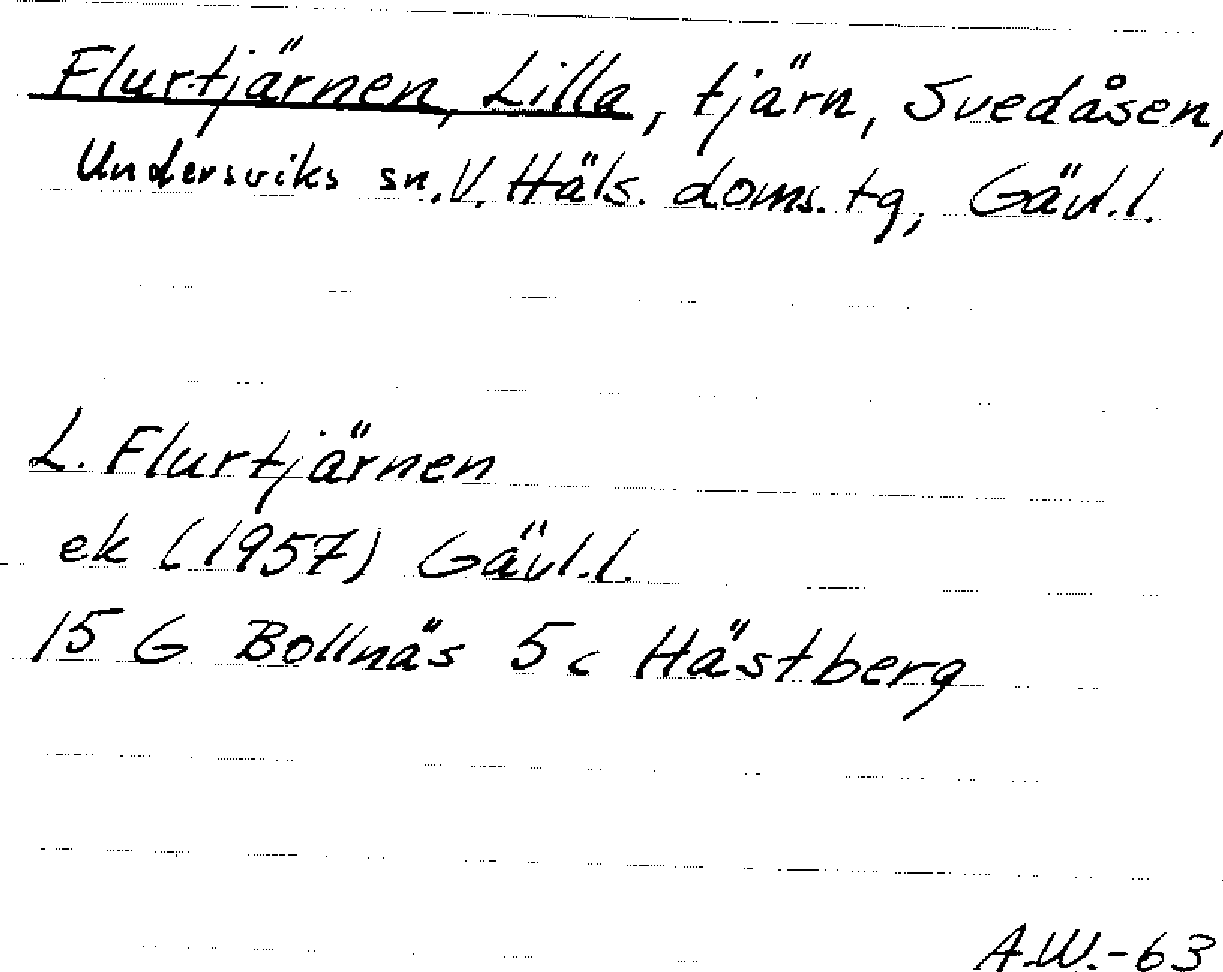 Flurtjärnen, Lilla, tjärn, Svedåsen,
Undersviks sn. V. Häls. doms. tg, Gävl.l.
L. Flurtjärnen
ek (1957) Gävl.l.
15 G Bollnäs 5c Hästberg
A.W.-63